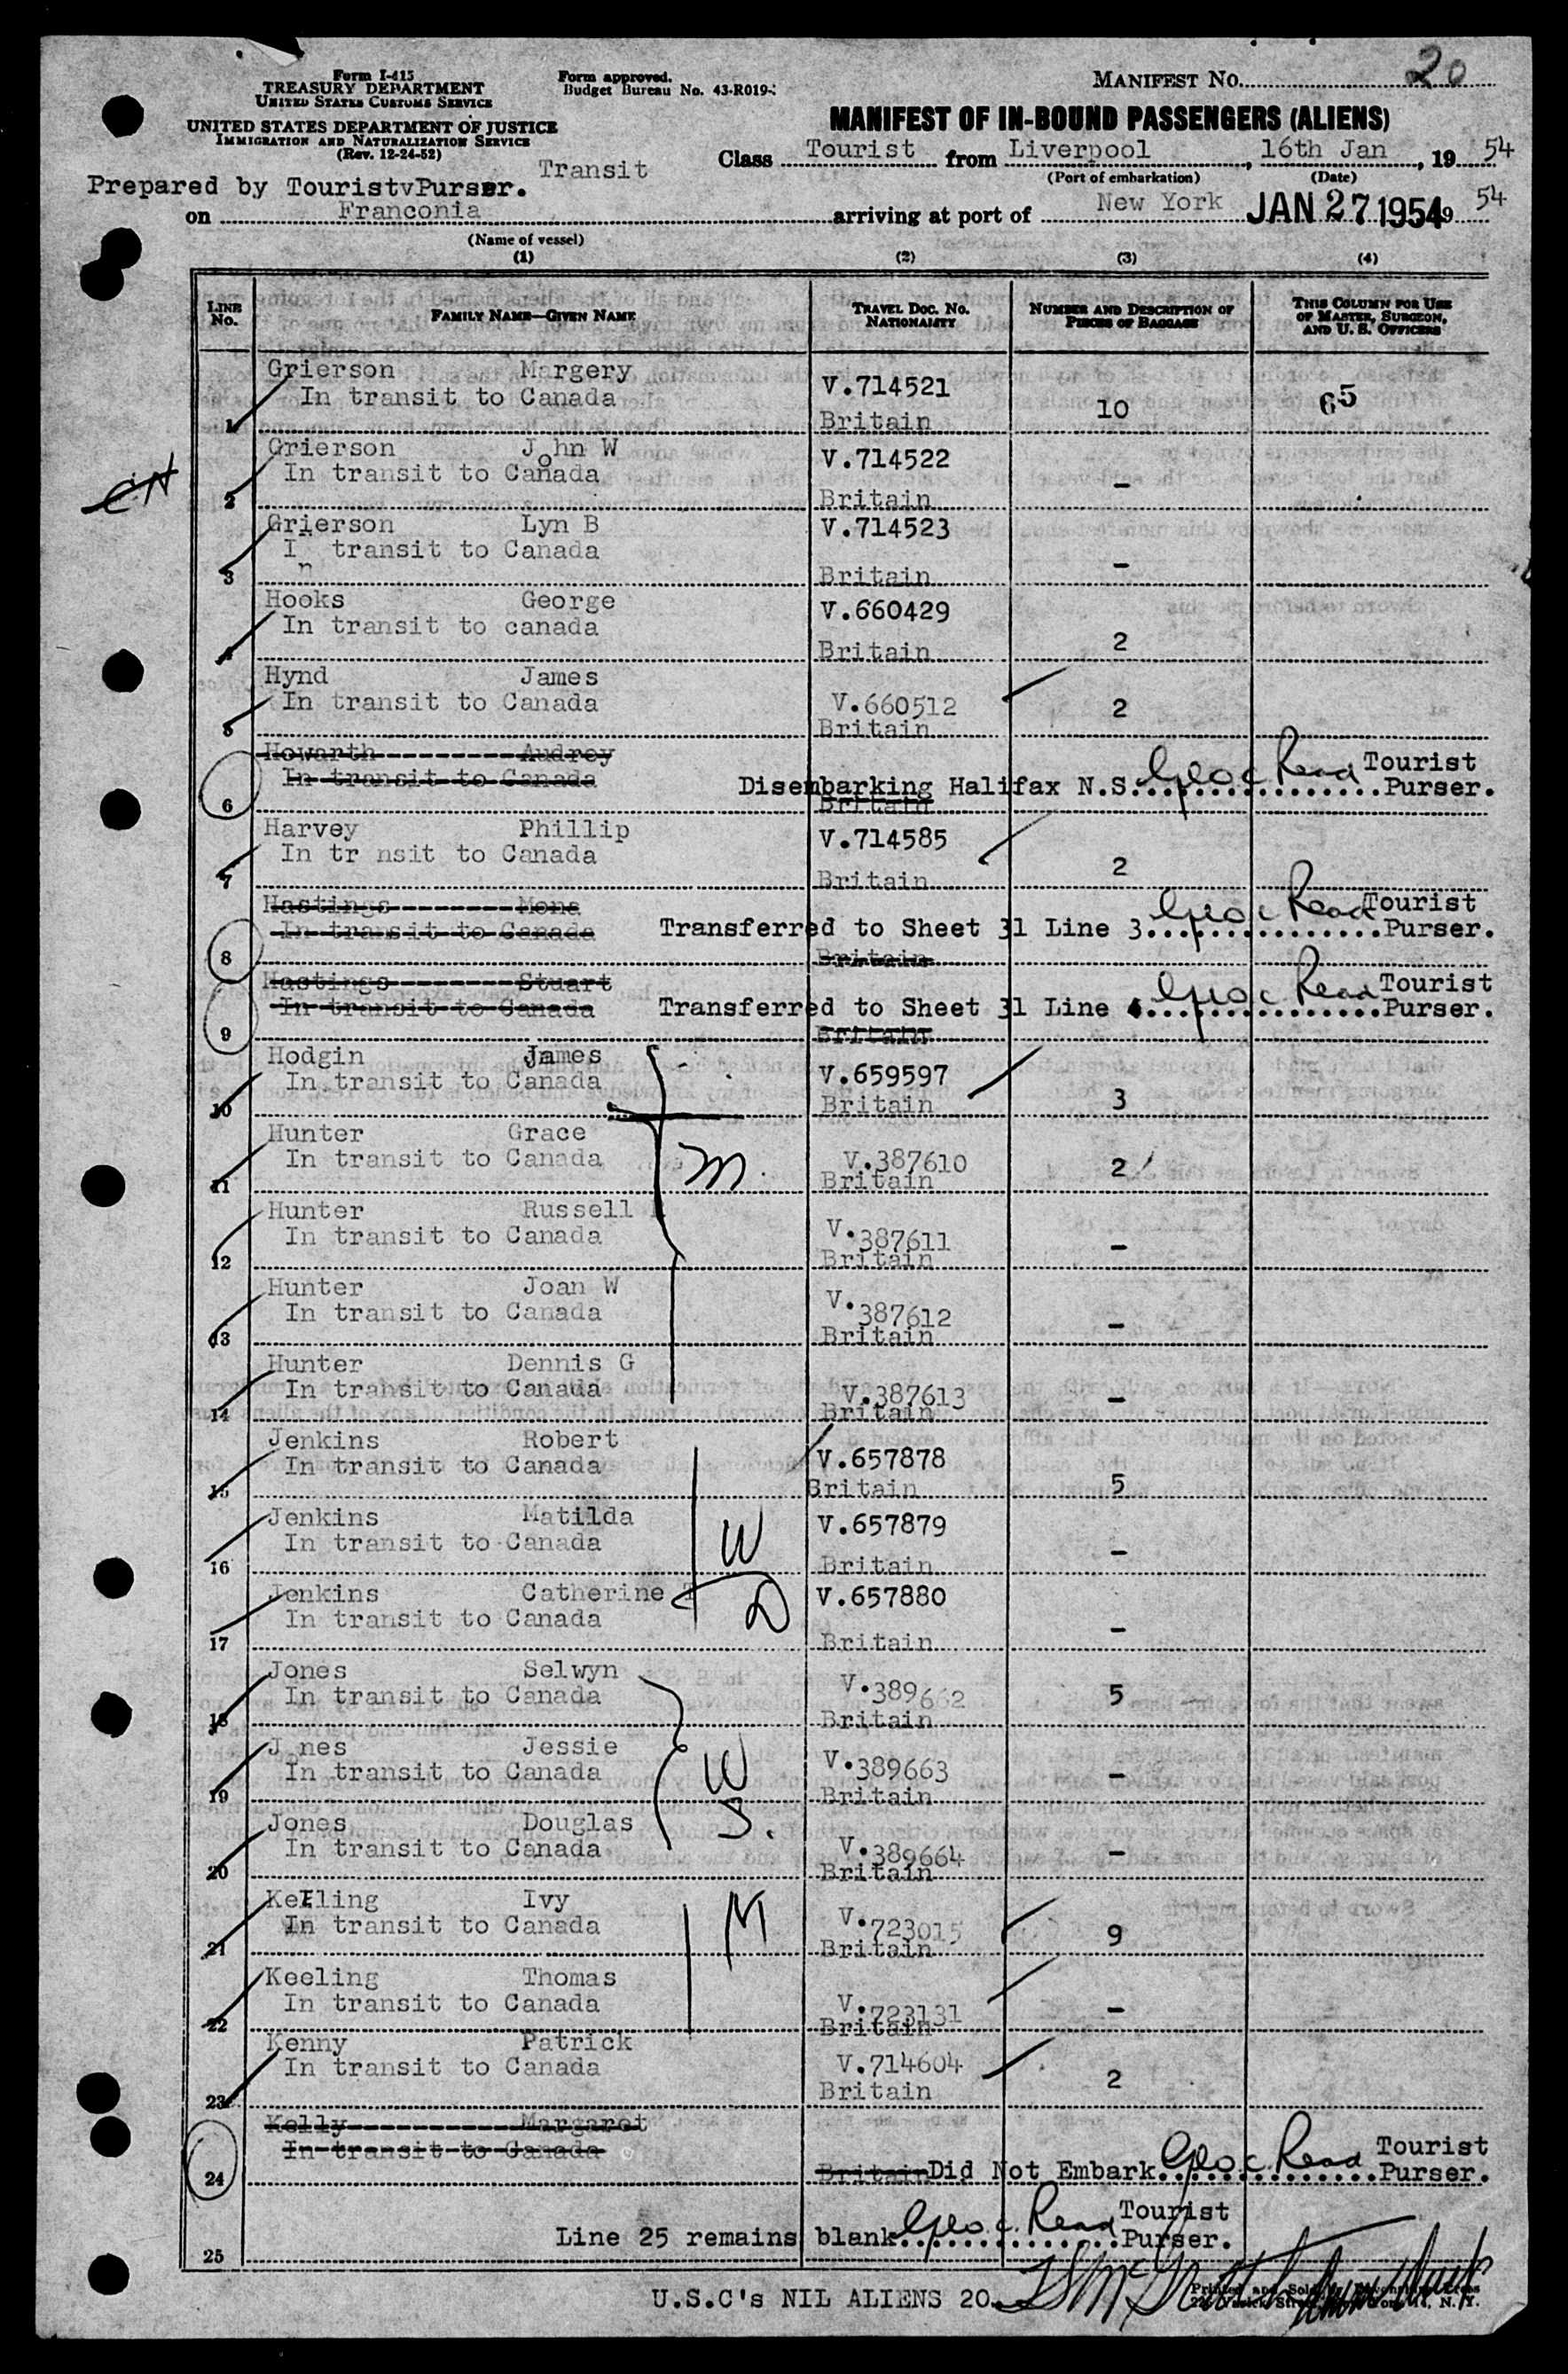 Form I-415
TREASURY DEPARTMENT
UNITED STATES CUSTOMS SERVICE
UNITED STATES DEPARTMENT OF JUSTICE
IMMIGRATION AND NATURALIZATION SERVICE
(Rev. 12-24-52)
Form approved.
Budget Bureau No. 43-R019-
MANIFEST No. 20
MANIFEST OF IN-BOUND PASSENGERS (ALIENS)
Transit
Class Tourist from Liverpool, 16th Jan, 19 54
(Port of embarkation) (Date)
Prepared by TouristvPurser.
on Franconia arriving at port of New York JAN 27 1954 9 54
(Name of vessel)
(1) (2) (3) (4)
LINE No. FAMILY NAME—GIVEN NAME TRAVEL DOC. NO. NATIONALITY NUMBER AND DESCRIPTION OF PIECES OF BAGGAGE THIS COLUMN FOR USE OF MASTER, SURGEON, AND U. S. OFFICERS
Grierson Margery V.714521
In transit to Canada
1 Britain 10 65
Grierson John W V.714522
In transit to Canada
2 Britain -
Grierson Lyn B V.714523
In transit to Canada
3 Britain -
Hooks George V.660429
In transit to canada
4 Britain 2
Hynd James
In transit to Canada V.660512
5 Britain 2
Howarth Audrey
In transit to Canada Disembarking Halifax N.S. Geo c. Read Tourist Purser.
6 Britain
Harvey Phillip V.714585
In tr nsit to Canada
7 Britain 2
Hastings Mona
In transit to Canada Transferred to Sheet 31 Line 3. Geo c Read Tourist Purser.
8 Britain
Hastings Stuart
In transit to Canada Transferred to Sheet 31 Line 4. Geo c Read Tourist Purser.
9 Britain
Hodgin James V.659597
In transit to Canada
10 Britain 3
Hunter Grace
In transit to Canada M. V.387610
11 Britain 2
Hunter Russell
In transit to Canada V.387611
12 Britain -
Hunter Joan W
In transit to Canada V.387612
13 Britain -
Hunter Dennis G
In transit to Canada V.387613
14 Britain -
Jenkins Robert V.657878
In transit to Canada
15 Britain 5
Jenkins Matilda V.657879
In transit to Canada W
16 Britain -
Jenkins Catherine T V.657880
In transit to Canada D
17 Britain -
Jones Selwyn
In transit to Canada V.389662 5
18 Britain
Jones Jessie
In transit to Canada W V.389663
19 Britain -
Jones Douglas S.
In transit to Canada V.389664
20 Britain -
Keeling Ivy
In transit to Canada M V.723015
21 Britain 9
Keeling Thomas
In transit to Canada V.723131
22 Britain -
Kenny Patrick
In transit to Canada V.714604
23 Britain 2
Kelly Margaret
In transit to Canada
24 Britain Did Not Embark. Geo c. Read Tourist Purser.
25 Line 25 remains blank. Geo. c. Read Tourist Purser.
U.S.C's NIL ALIENS 20.